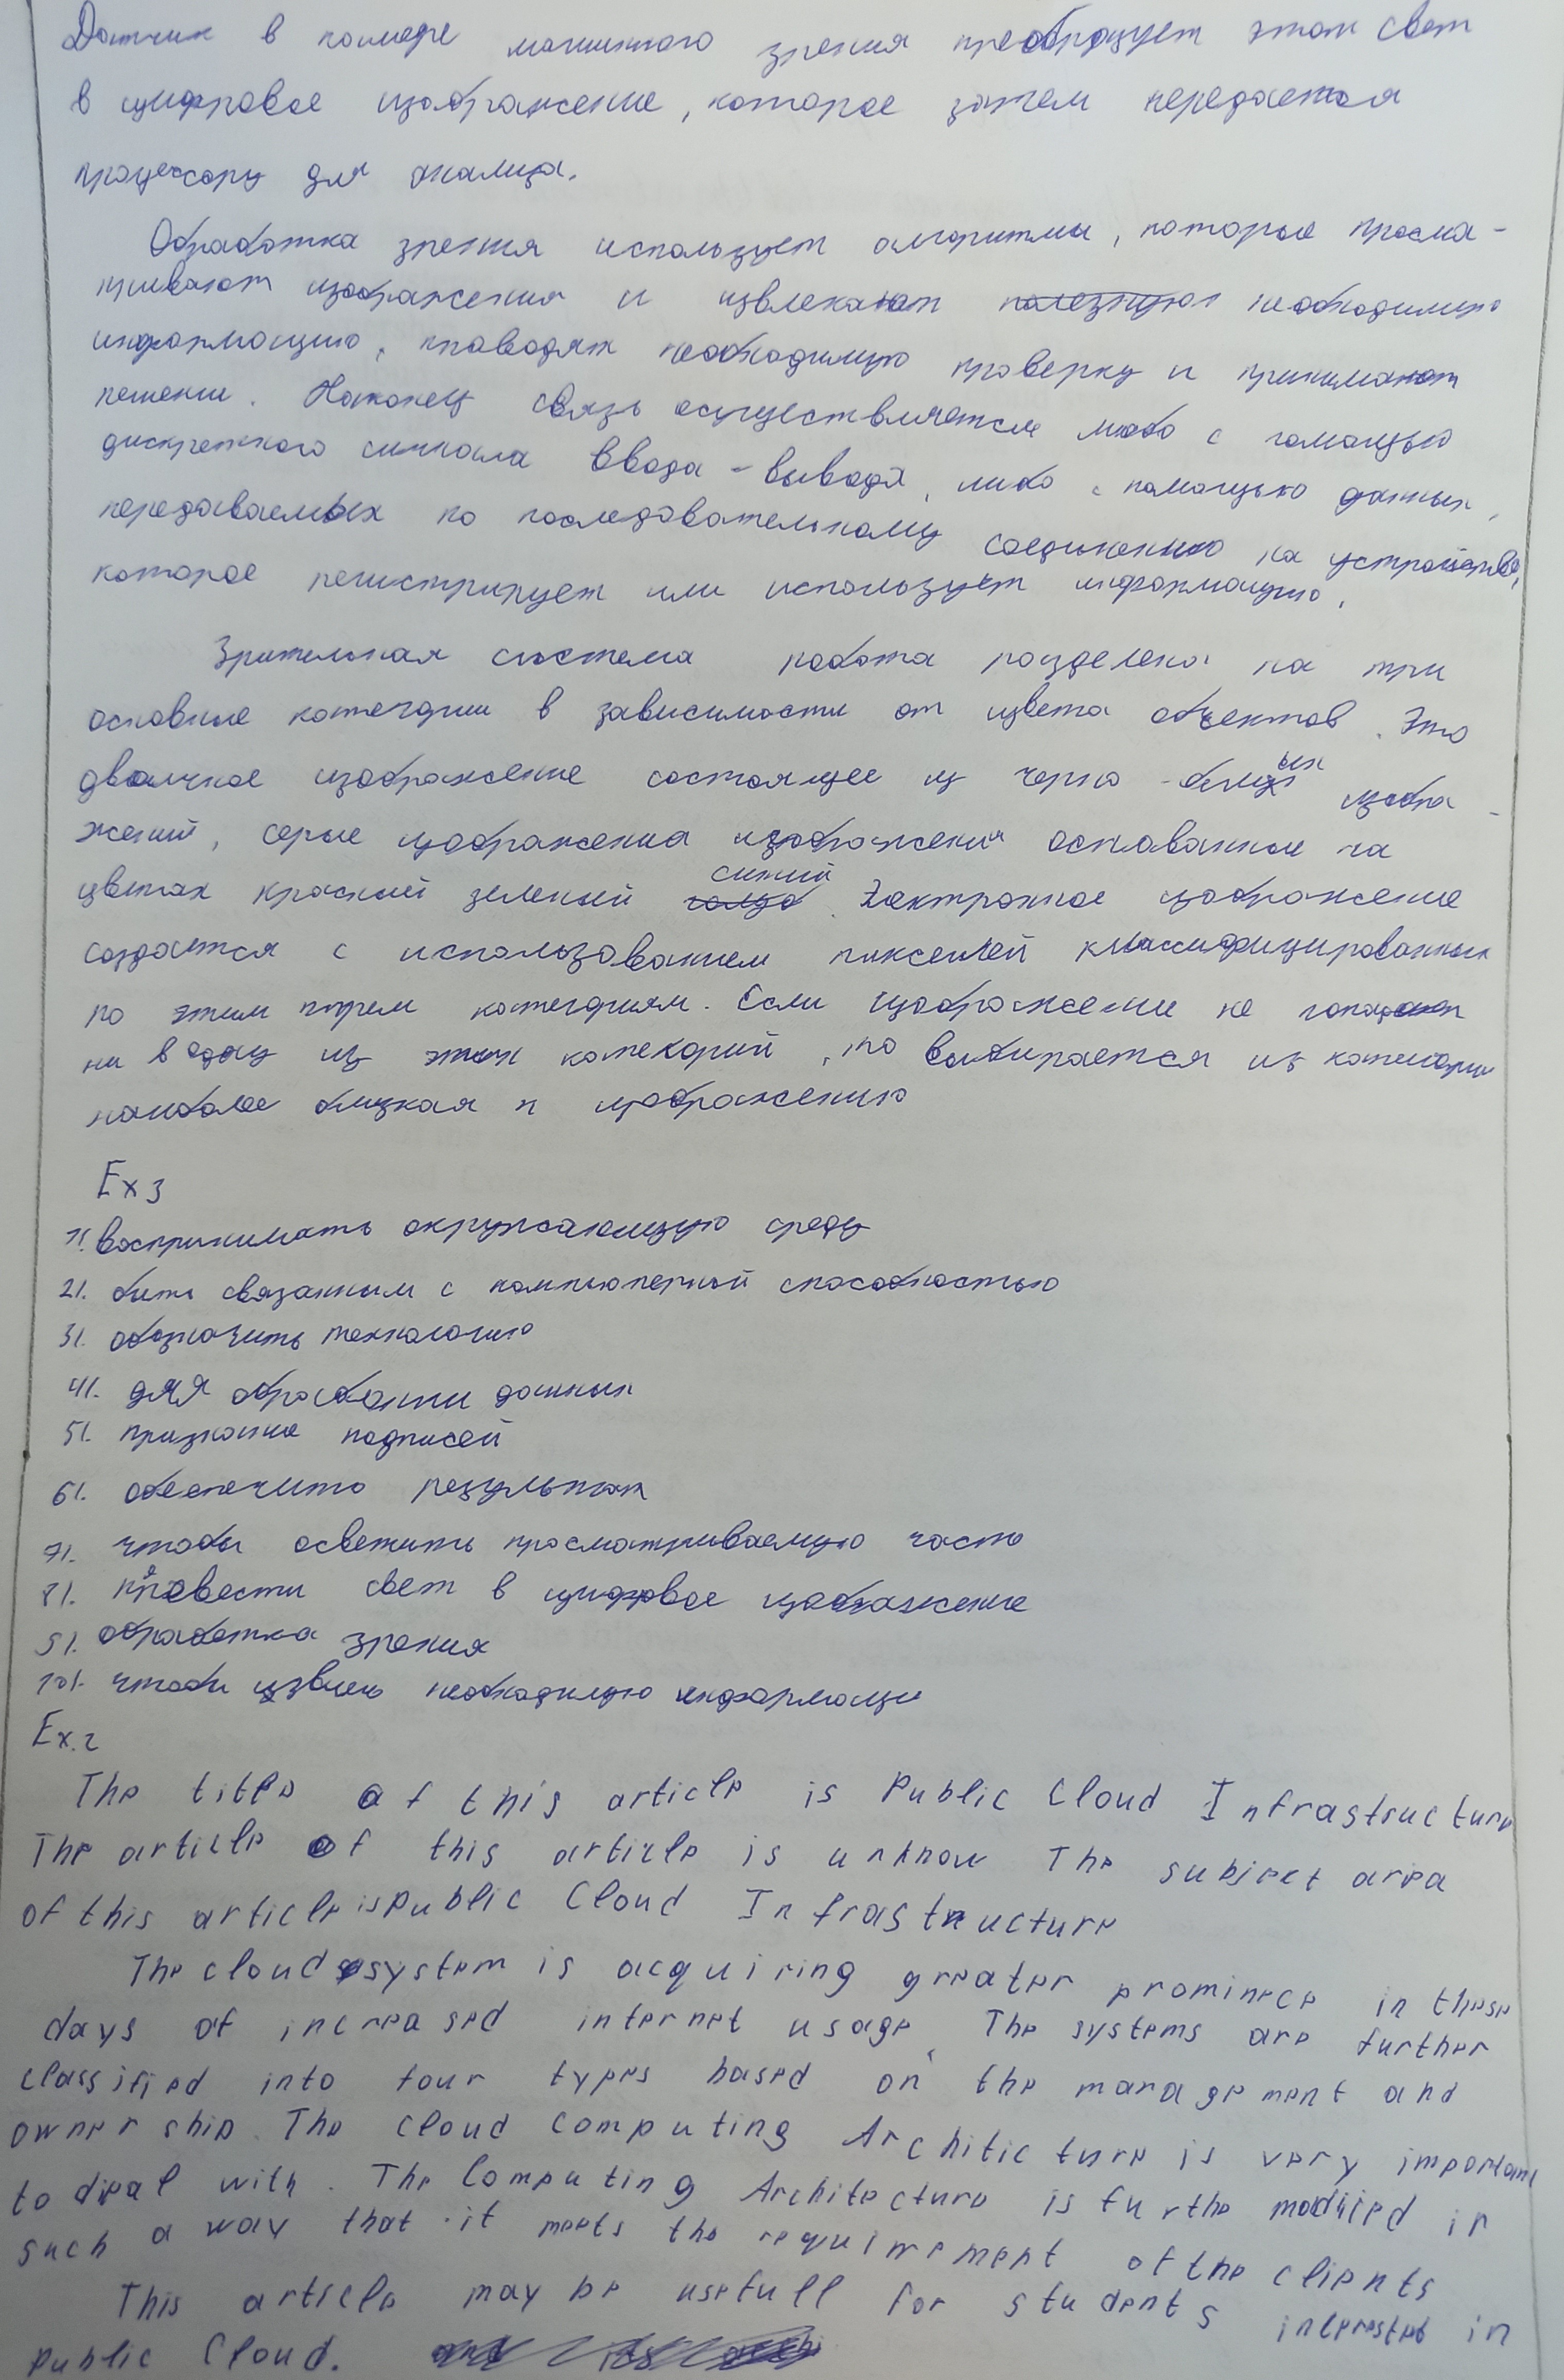 Датчик в камере машинного зрения преобразует этот свет
в цифровое изображение, которое затем передается
процессору для анализа.
Обработка зрения использует алгоритмы, которые просма-
тривают изображения и извлекают полезную необходимую
информацию, проводят необходимую проверку и принимают
решение. Наконец связь осуществляется либо с помощью
дискретного сигнала ввода-вывода, либо с помощью данных,
передаваемых по последовательному соединению на устройство,
которое регистрирует или использует информацию.
Зрительная система робота разделена на три
основные категории в зависимости от цвета объектов. Это
двоичное изображение состоящее из черно-белых изобра-
жений, серые изображения изображения основанные на
цветах красный зеленый синий. Электронное изображение
создается с использованием пикселей классифицированных
по этим трем категориям. Если изображение не попадает
ни в одну из этих категорий, то выбирается из категории
наиболее близкая к изображению
Ex 3
1). воспринимать окружающую среду
2). быть связанным с компьютерной способностью
3). обозначить технологию
4). для обработки данных
5). признание подписей
6). обеспечить результат
7). чтобы осветить просматриваемую часть
8). провести свет в цифровое изображение
9). обработка зрения
10). чтобы извлечь необходимую информации
Ex. 2
The title of this article is Public Cloud Infrastructure
The article of this article is unknow The subject area
of this article is public Cloud Infrastructure
The cloud system is acquiring greater prominece in these
days of increased internet usage. The systems are further
classified into four types based on the management and
ownership. The Cloud Computing Architicture is very important
to deal with. The Computing Architecture is furthe modified in
such a way that it meets the requirement of the clients
This article may be usefull for students interested in
public Cloud.